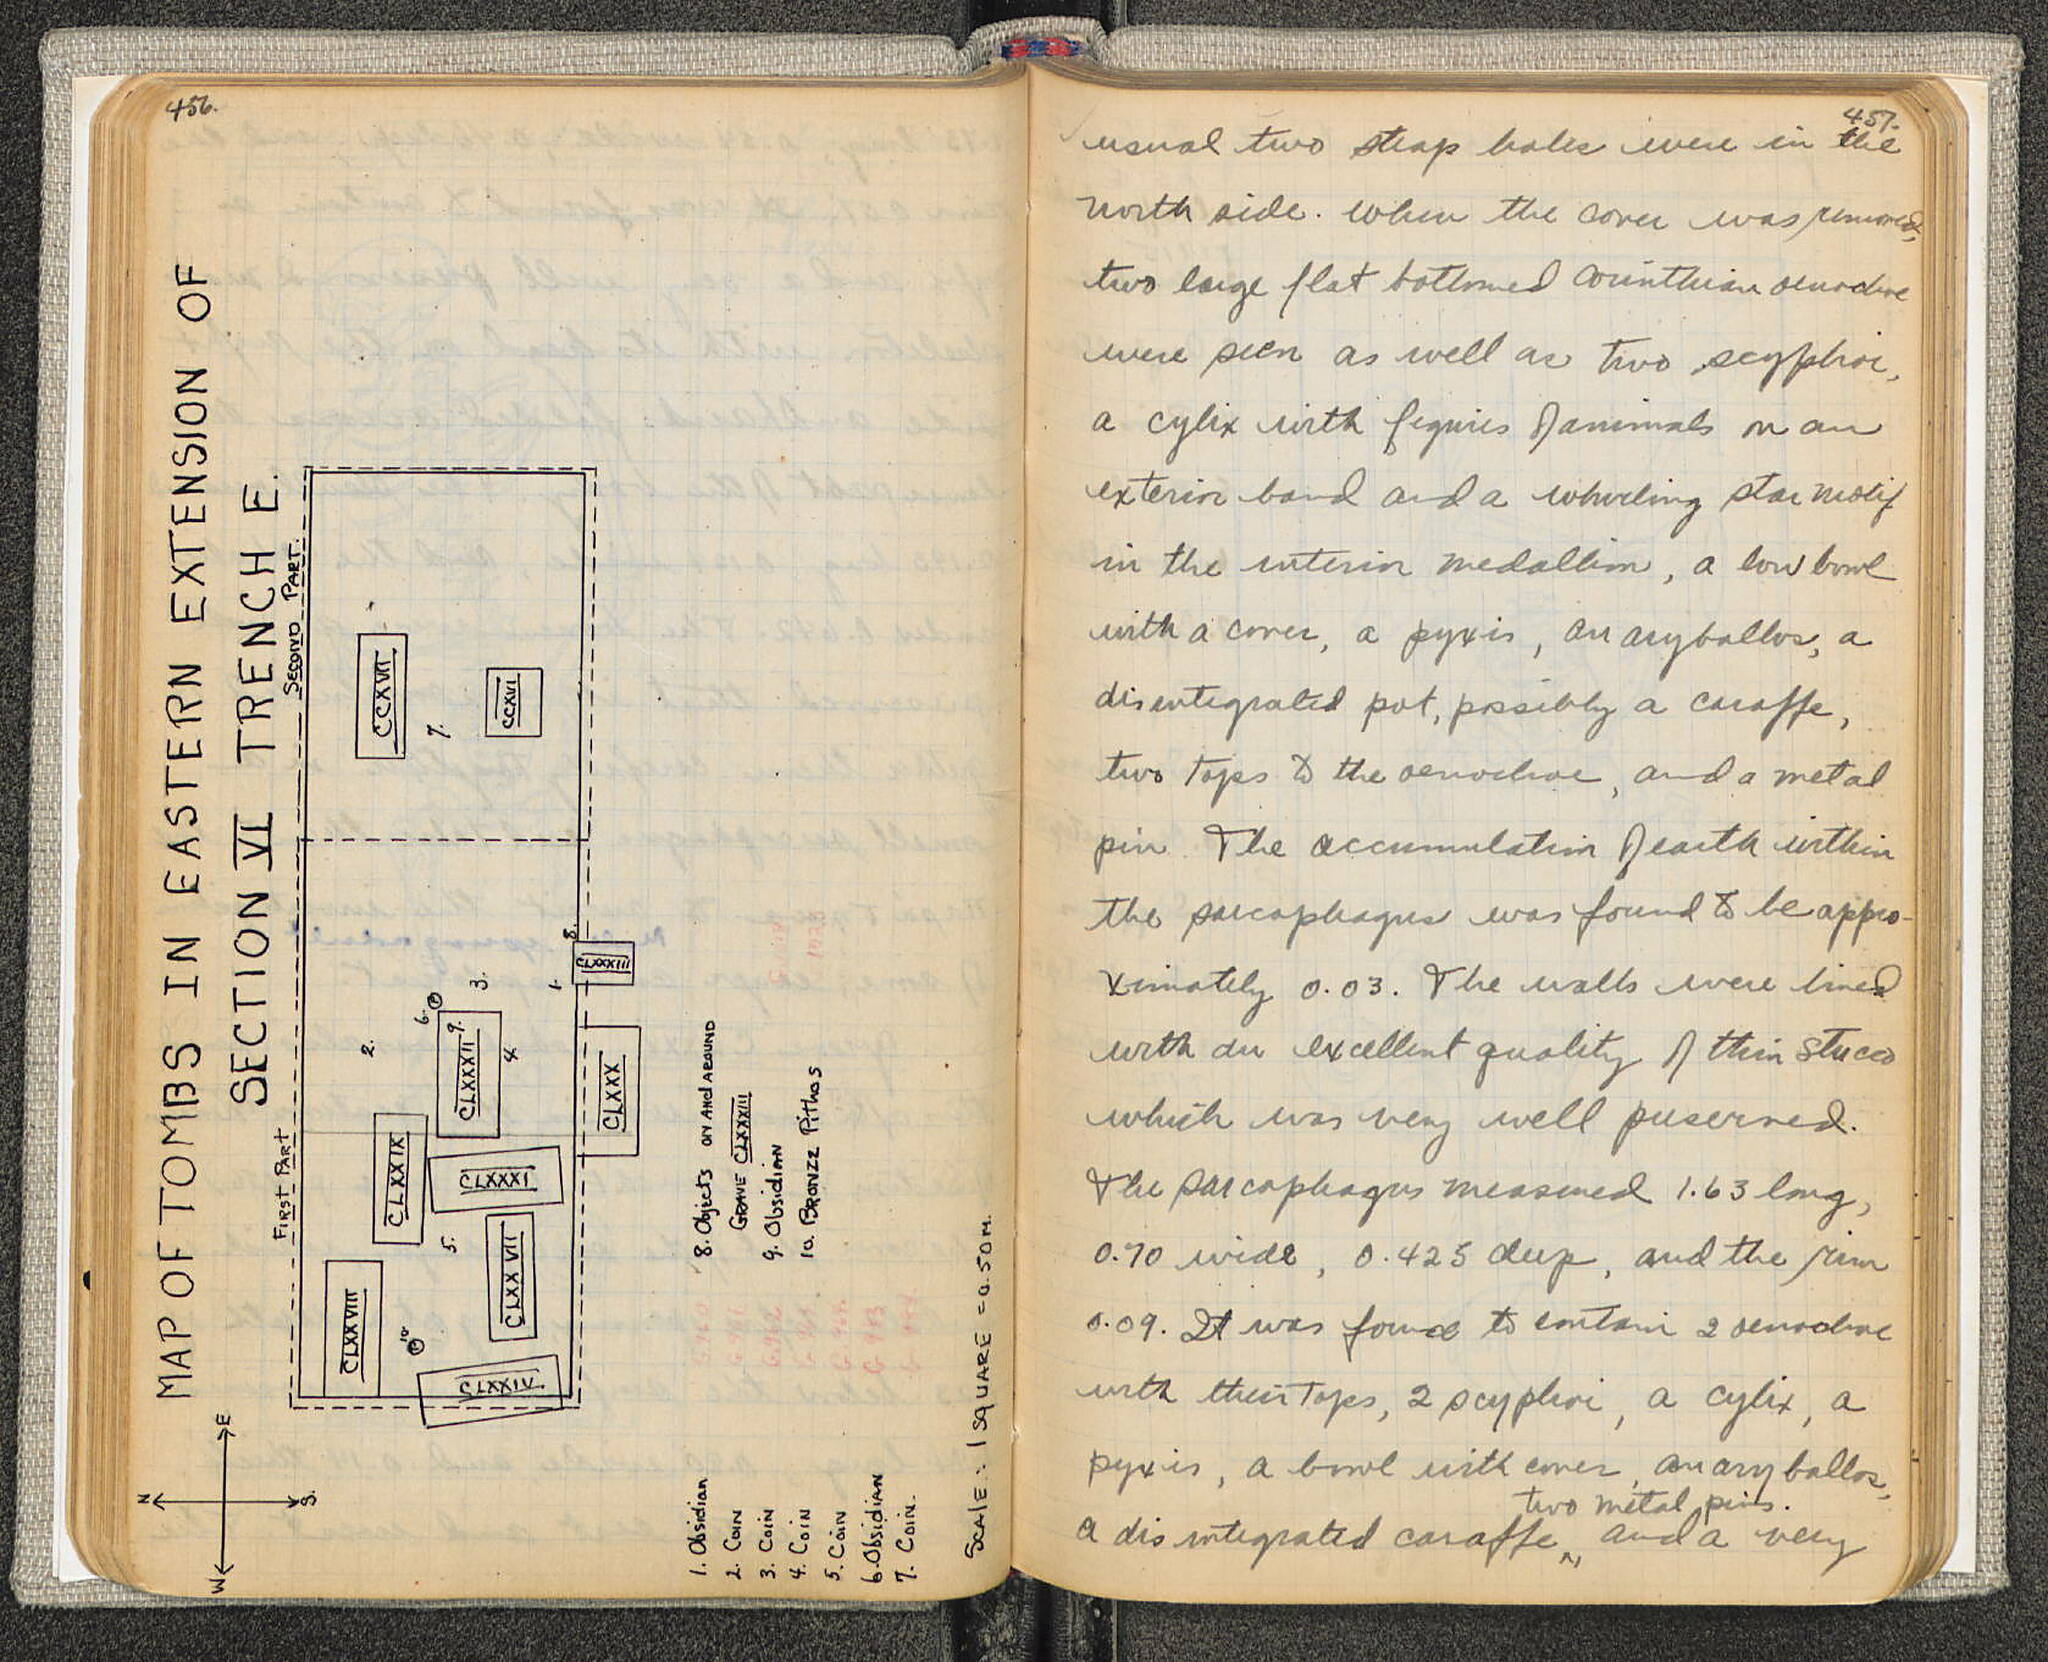 456.
MAP OF TOMBS IN EASTERN EXTENSION OF
SECTION VI TRENCH E.
FIRST PART
SECOND PART.
N
S.
W
E
CLXXVIII
CLXXIX
CCXVII
10
5.
2.
6.
7.
CLXXIV
CLXXVII
CLXXXI
CLXXXII
9.
3.
4.
CCXVI
1.
8.
CLXXX
CLXXXIII
1. Obsidian
2. COIN
3. COIN
4. COIN
5. COIN
6. Obsidian
7. COIN.
8. Objects ON ANd AROUND
GRAVE CLXXXIII
9. Obsidian
10. BRONZE Pithos
SCALE:- 1 SQUARE = 0.50 M.
457.
usual two strap holes were in the
north side. When the cover was removed,
two large flat bottomed Corinthian oenochoe
were seen as well as two scyphoi,
a cylix with figures of animals on an
exterior band and a whirling star motif
in the interior medallion, a low bowl
with a cover, a pyxis, an aryballos, a
disintegrated pot, possibly a caraffe,
two tops to the oenochoe, and a metal
pin. The accumulation of earth within
the sarcophagus was found to be appro-
ximately 0.03. The walls were lined
with an excellent quality of thin stucco
which was very well preserved.
The sarcophagus measured 1.63 long,
0.70 wide, 0.425 deep, and the rim
0.09. It was found to contain 2 oenochoe
with their tops, 2 scyphoi, a cylix, a
pyxis, a bowl with cover, an aryballos,
two metal pins.
a disintegrated caraffe, and a very